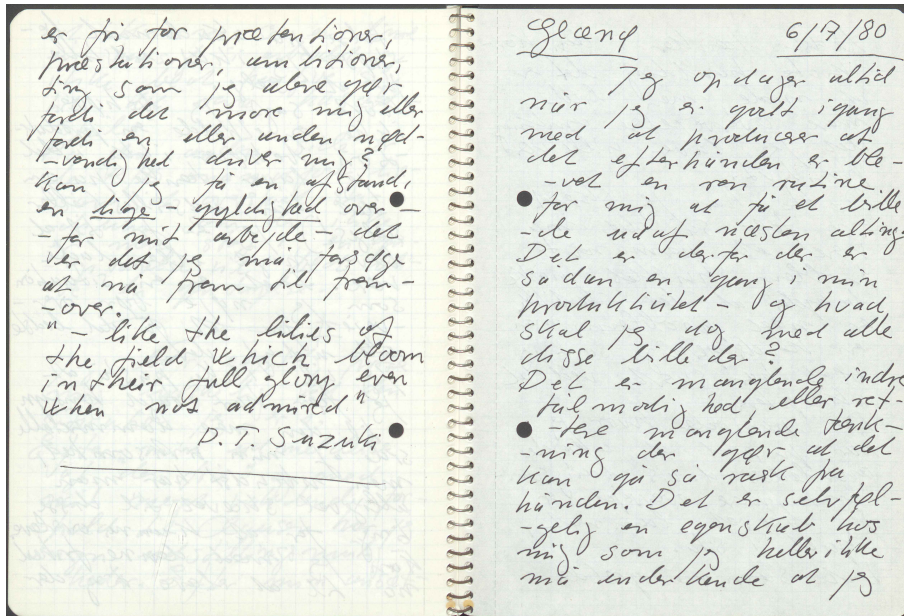 er fri for prætentioner,
præstationer, ambitioner,
ting som jeg alene gør
fordi det more mig eller
fordi en eller anden nød-
-vendighed driver mig?
Kan jeg få en afstand,
en lige-gyldighed over-
-for mit arbejde – det
er det jeg må forsøge
at nå frem til frem-
-over.
"– like the lilies of
the field which bloom
in their full glory even
when not admired"
D. T. Suzuki
Glænø 6/7/80
Jeg opdager altid
når jeg er godt igang
med at producere at
det efterhånden er ble-
-vet en ren rutine
for mig at få et bille-
-de ud af næsten alting.
Det er derfor der er
sådan en gang i min
produktivitet – og hvad
skal jeg dog med alle
disse billeder?
Det er manglende indre
tålmodighed eller ret-
-tere manglende tænk-
-ning der gør at det
kan gå så rask fra
hånden. Det er selvføl-
-gelig en egenskab hos
mig som jeg heller ikke
må underkende at jeg